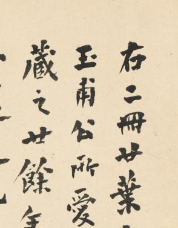 右二冊廿葉
玉甫公所愛
藏之廿餘年